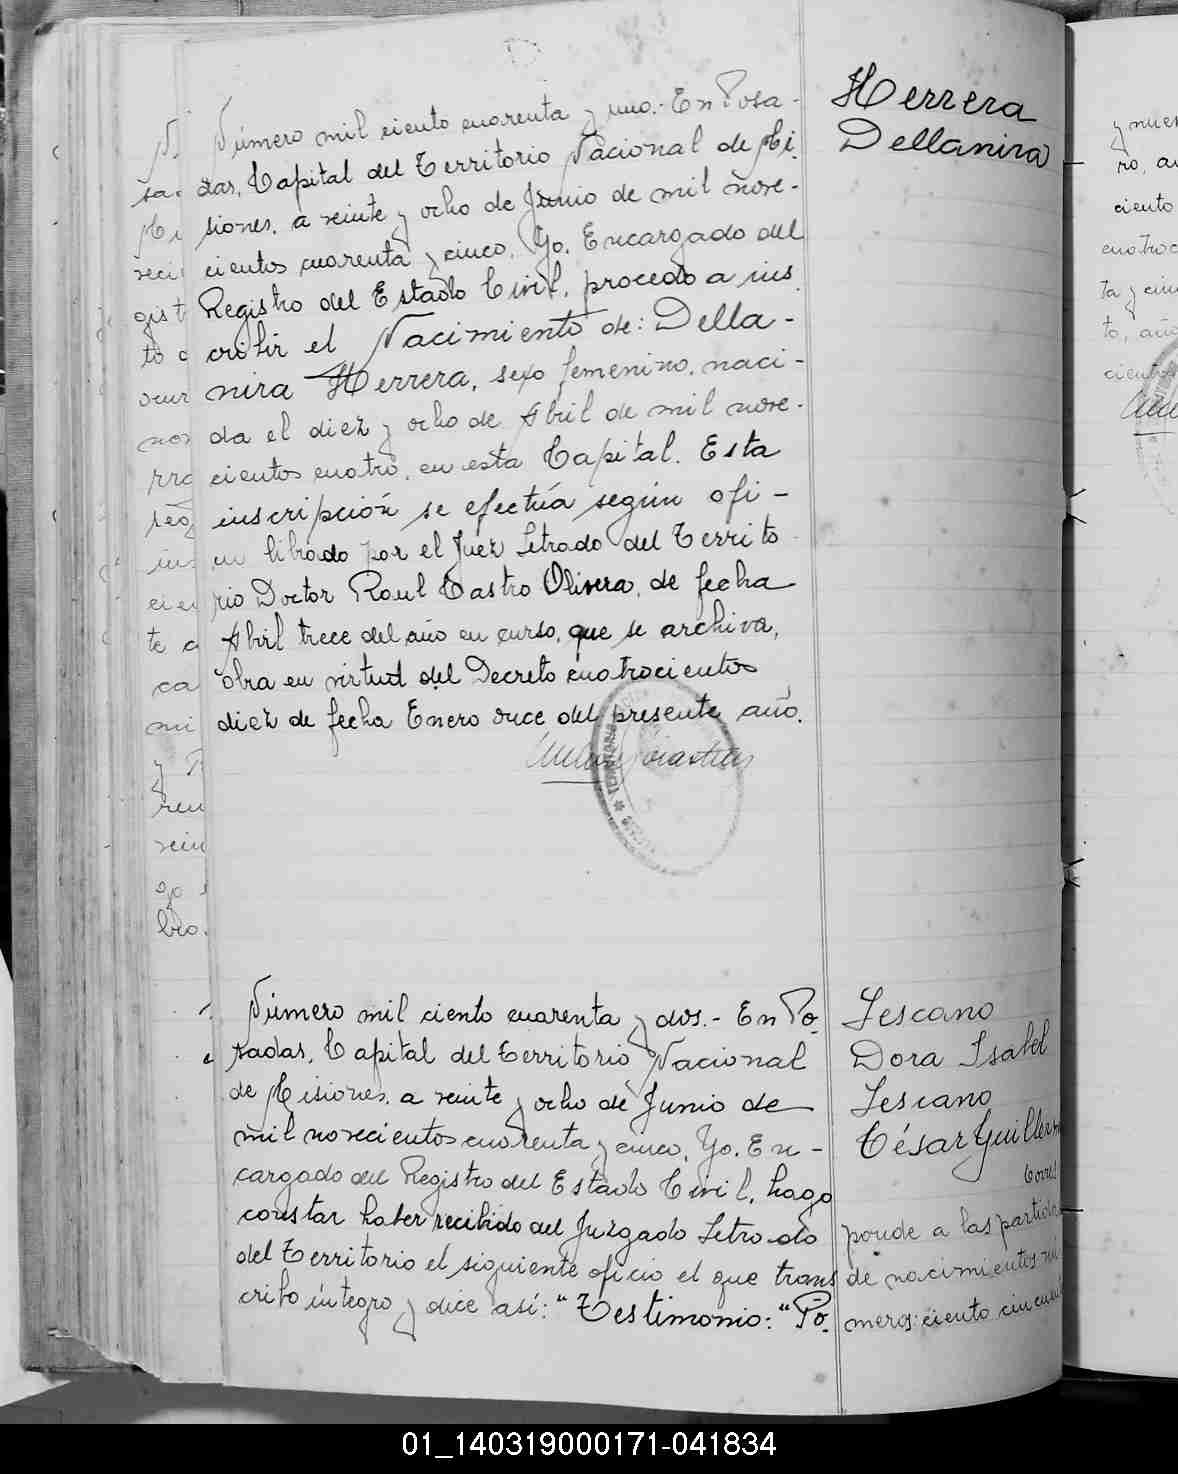 Número mil ciento cuarenta y uno.- En Posa-
das, Capital del Territorio Nacional de Mi-
siones, a veinte y ocho de Junio de mil nove-
cientos cuarenta y cinco, Yo, Encargado del
Registro del Estado Civil, procedo a ins
cribir el Nacimiento de: Della-
nira Herrera, sexo femenino, naci-
da el diez y ocho de Abril de mil nove-
cientos cuatro, en esta Capital. Esta
inscripción se efectúa según ofi-
cio librado por el Juez Letrado del Territo
rio Doctor Raul Castro Olivera, de fecha
Abril trece del año en curso, que se archiva,
obra en virtud del Decreto cuatrocientos
diez de fecha Enero once del presente año.
Herrera
Dellanira
TERRITORIO
Número mil ciento cuarenta y dos.- En Po-
sadas, Capital del Territorio Nacional
de Misiones, a veinte y ocho de Junio de
mil novecientos cuarenta y cinco, Yo, En-
cargado del Registro del Estado Civil, hago
constar haber recibido del Juzgado Letrado
del Territorio el siguiente oficio el que trans
cribo íntegro y dice así: "Testimonio: "Po-
Lescano
Dora Isabel
Lescano
César Guillerm
Corres
ponde a las partidas
de nacimientos nú
meros: ciento cincuen
y nues
ro, au
ciento
cuatroc
ta y cin
to, año
ciento
sa
Mi
reci
gist
to
ocur
nos
rra
reg
ins
cien
te a
ca
mi
y
ren
vein
go
bro.
01_140319000171-041834